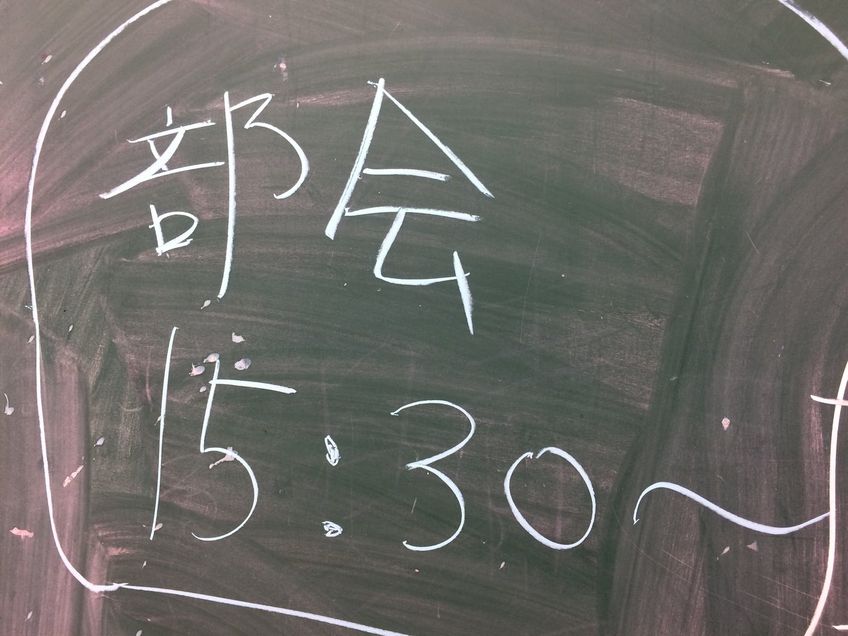 部会
15:30~